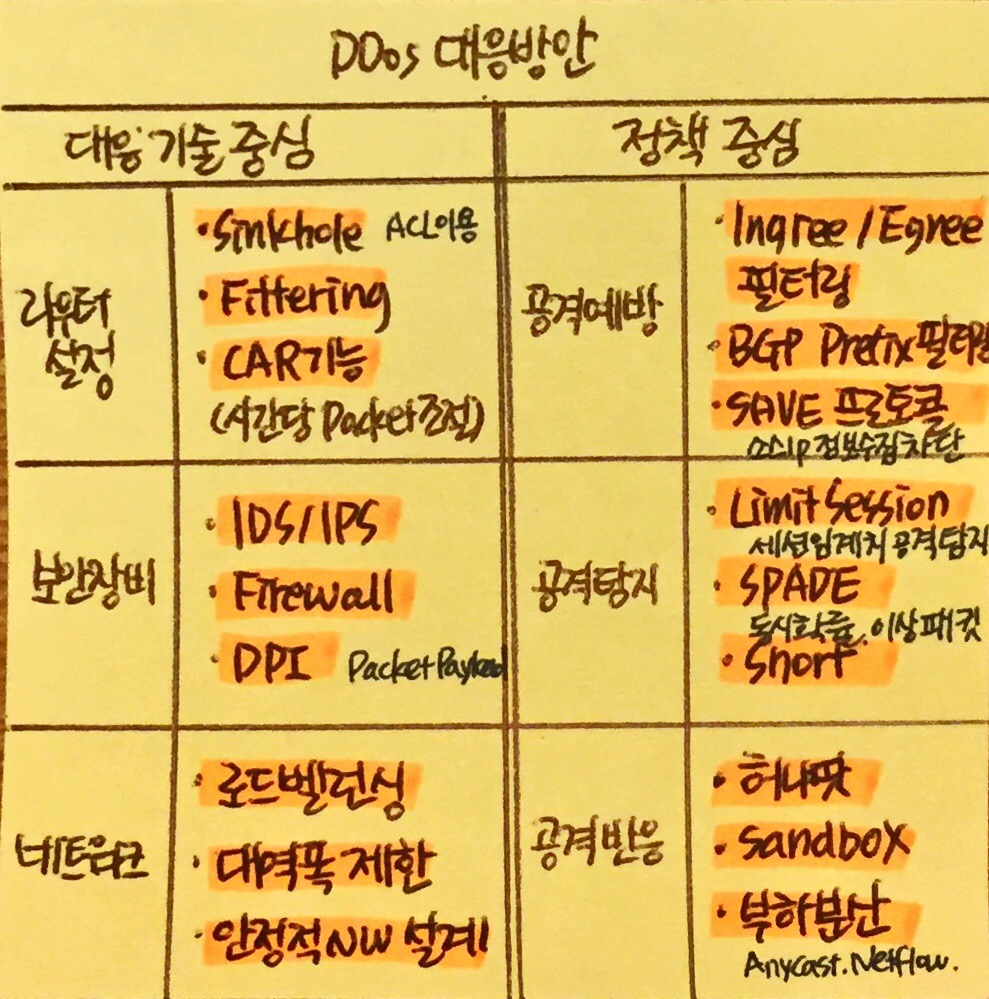 DDos 대응방안
대응기술중심
정책 중심
라우터
설정
·Sinkhole ACL이용
·Filtering
·CAR기능
(시간당 Packet조절)
공격예방
·Ingree/Egree
필터링
·BGP Prefix필터링
·SAVE 프로토콜
소스IP정보수집차단
보안장비
·IDS/IPS
·Firewall
·DPI Packet Payload
공격탐지
·Limit Session
세션임계치 공격탐지
·SPADE
동시확률. 이상패킷
·Snort
네트워크
·로드밸런싱
·대역폭 제한
·안정적NW 설계
공격반응
·허니팟
·sandbox
·부하분산
Anycast.Netflow.